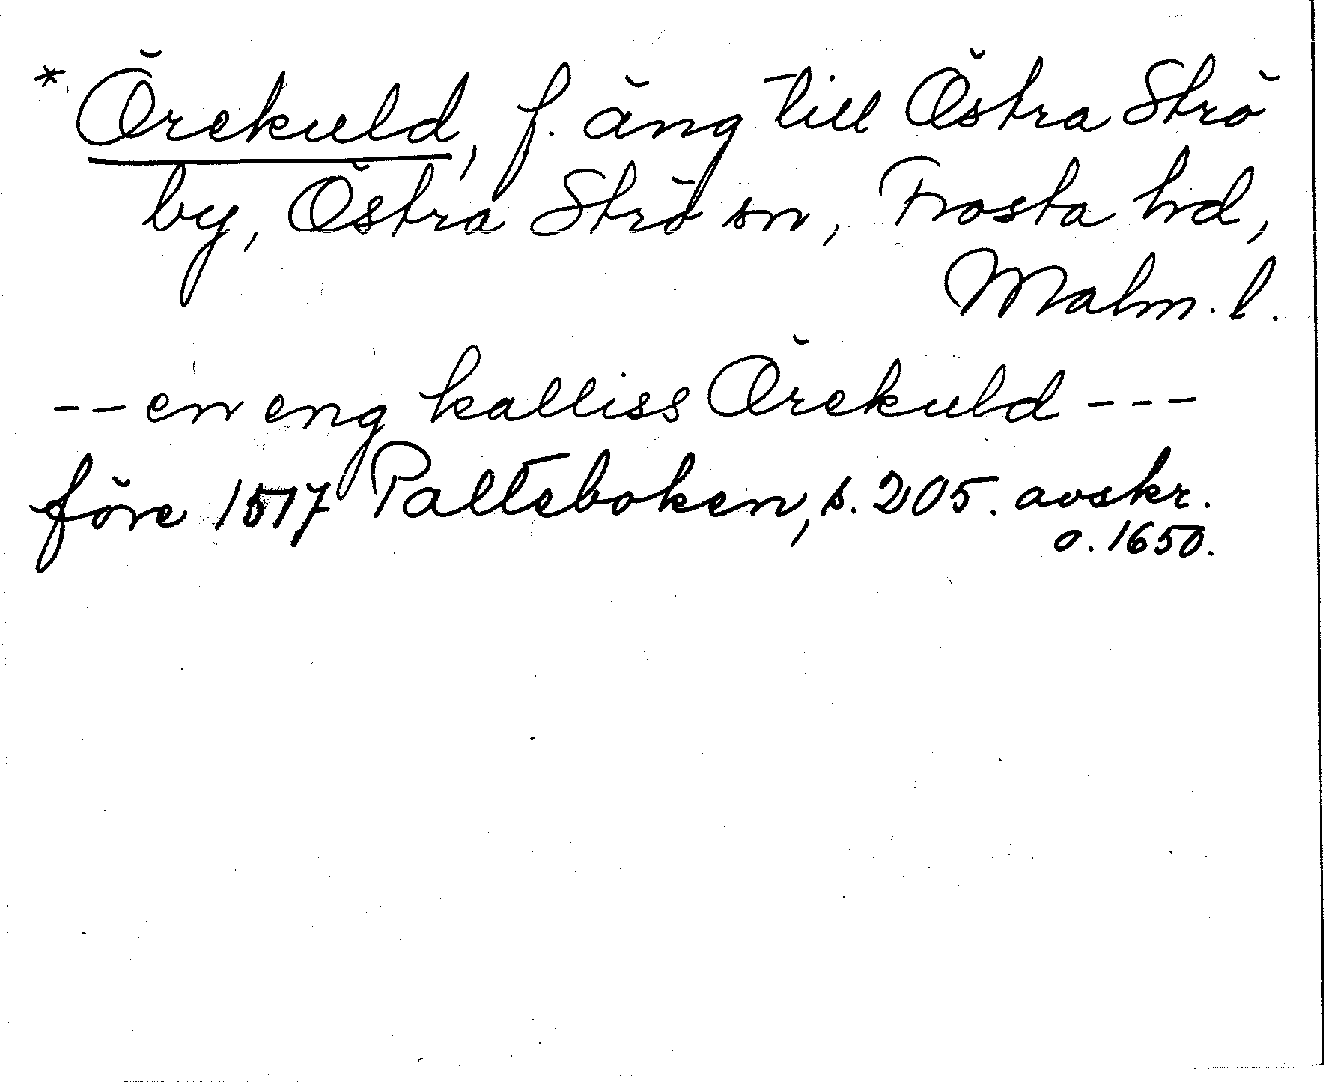 * Örekuld, f. äng till Östra Strö
by, Östra Strö sn, Frosta hd,
Malm. l.
-- en eng kalliss Örekuld ---
före 1517 Palteboken, s. 205. avskr.
o. 1650.